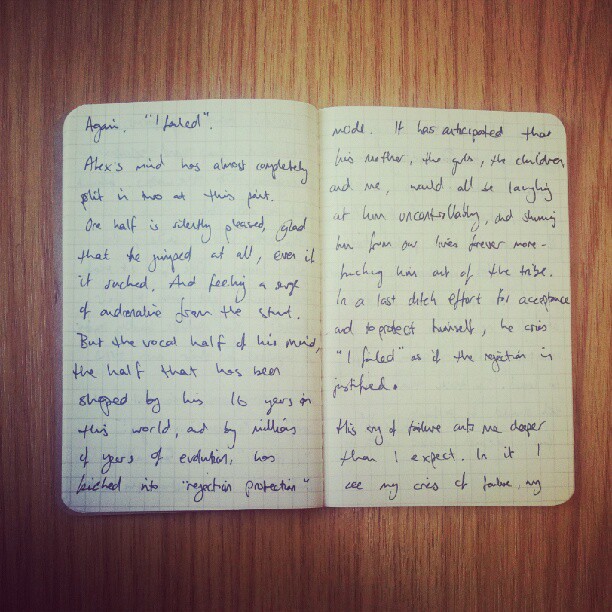 Again. "I failed".
Alex's mind has almost completely
split in two at this point.
One half is silently pleased, glad
that he jumped at all, even if
it sucked. And feeling a surge
of adrenaline from the stunt.
But the vocal half of his mind,
the half that has been
shaped by his 16 years in
this world, and by millions
of years of evolution, has
kicked into "rejection protection"
mode. It has anticipated that
his mother, the girls, the children
and me, would all be laughing
at him uncontrollably, and shunning
him from our lives forever more -
him out of the tribe.
In a last ditch effort for acceptance
and to protect himself, he cries
"I failed" as if the rejection is
justified.
This cry of failure cuts me deeper
than I expect. In it I
see my cries of failure, my